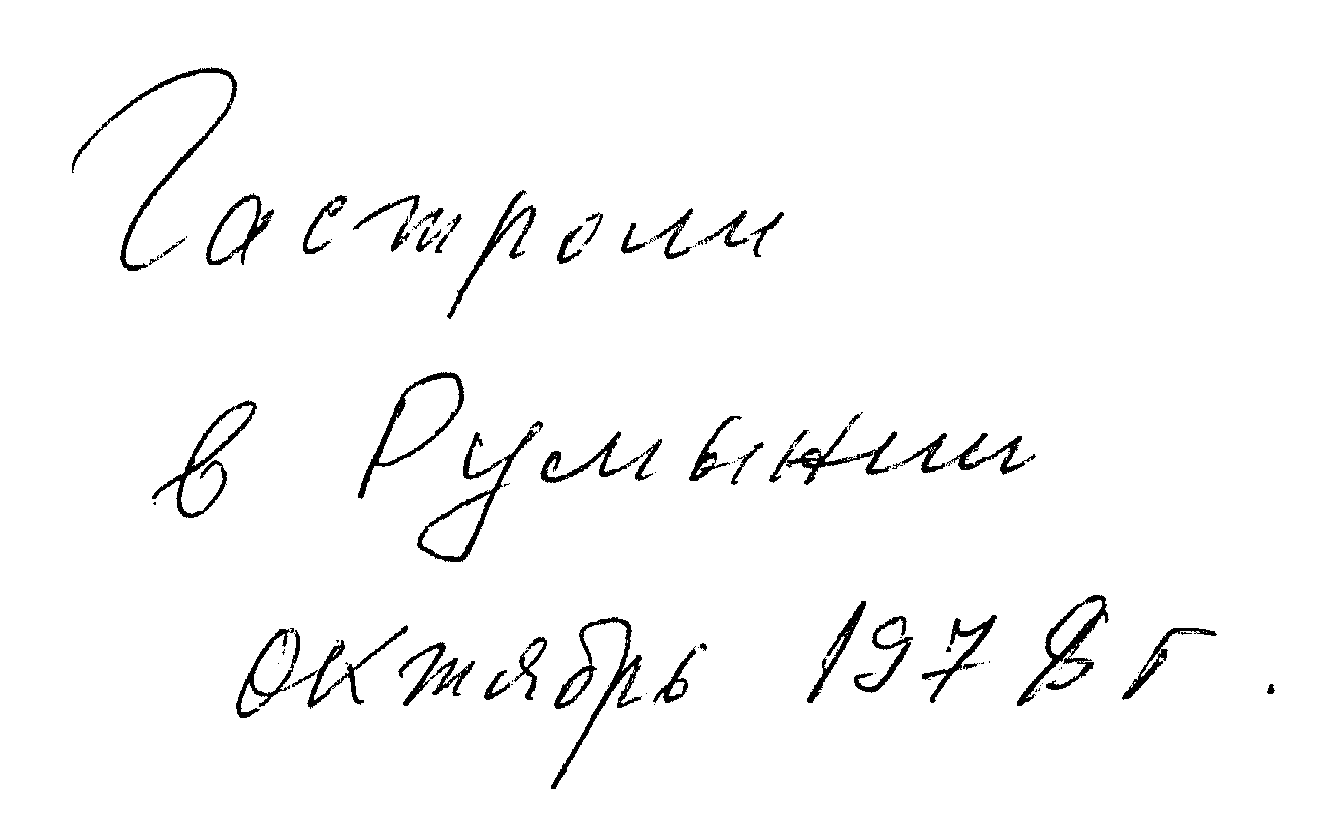 Гастроли
в Румынии
октябрь 1978 г.